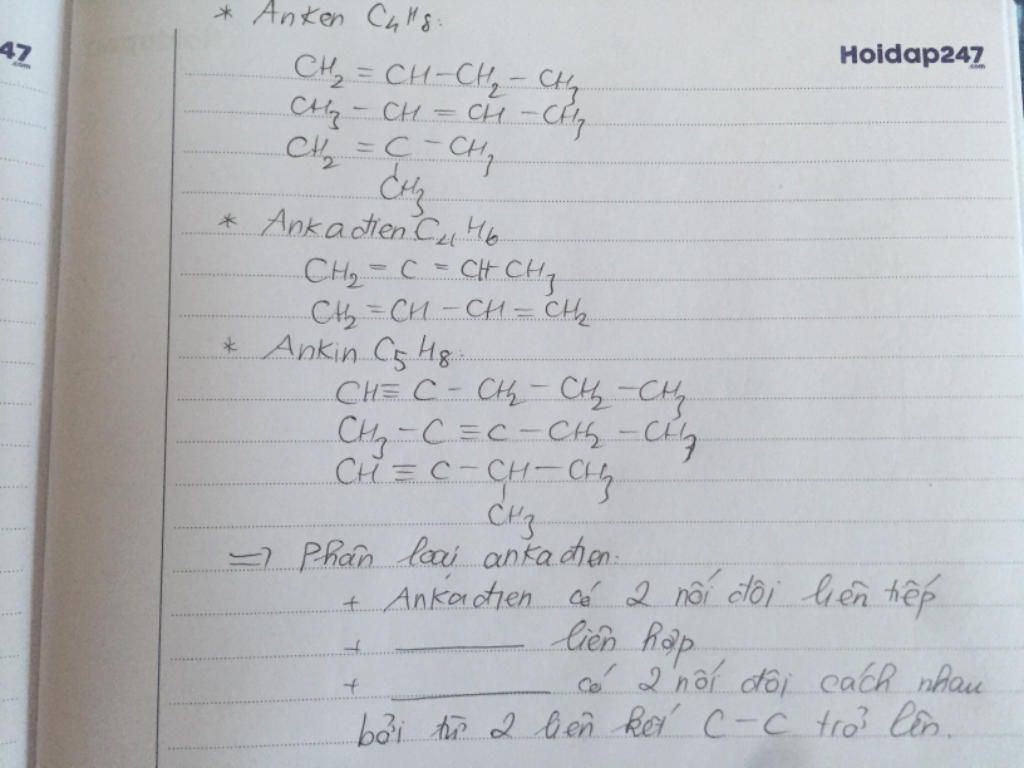 * Anken C4H8:
47
.com
Hoidap247
.com
CH2 = CH - CH2 - CH3
CH3 - CH = CH - CH3
CH2 = C - CH3
CH3
* Ankađien C4H6
CH2 = C = CH CH3
CH2 = CH - CH = CH2
* Ankin C5H8:
CH ≡ C - CH2 - CH2 - CH3
CH3 - C ≡ C - CH2 - CH3
CH ≡ C - CH - CH3
CH3
=> Phân loại ankađien:
+ Ankađien có 2 nối đôi liên tiếp
+ ——— liên hợp
+ ——— có 2 nối đôi cách nhau
bởi từ 2 liên kết C - C trở lên.